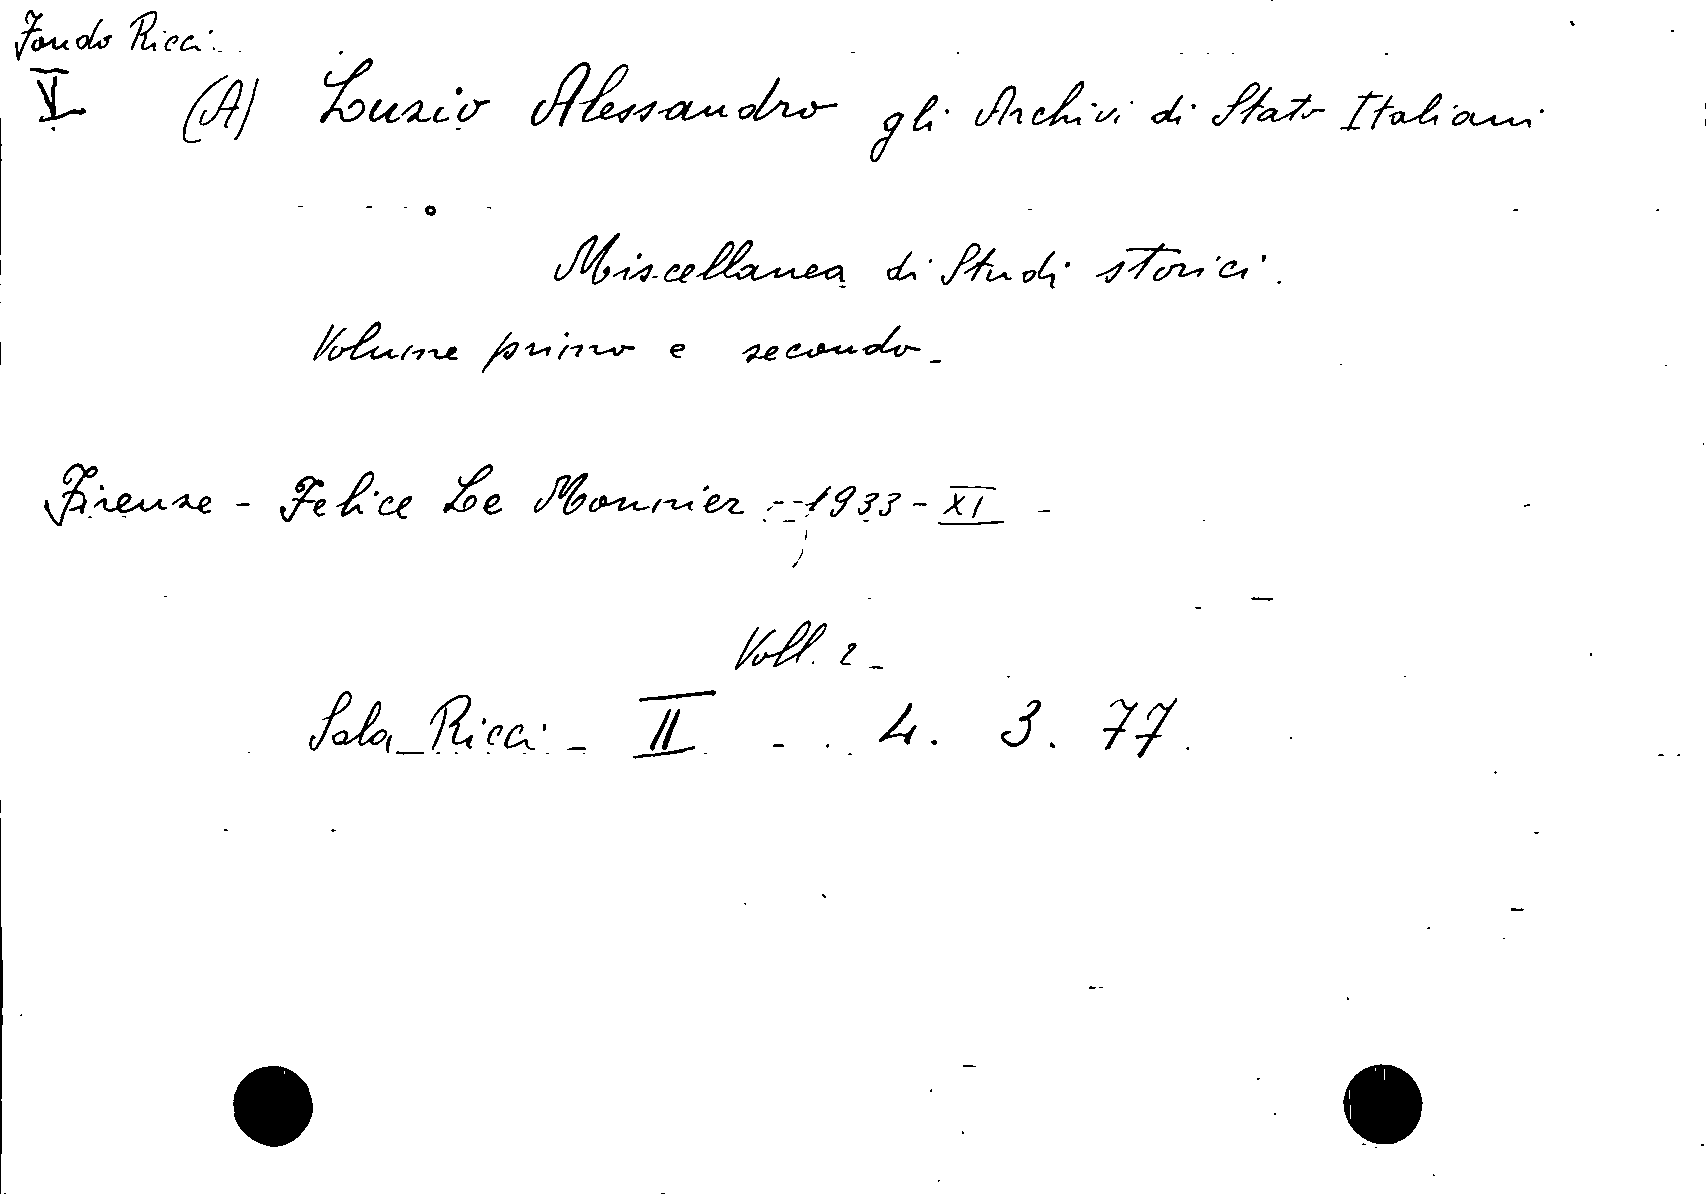 Fondo Ricci.
V (A) Luzio Alessandro gli Archivi di Stato Italiani
Miscellanea di Studi storici.
Volume primo e secondo -
Firenze - Felice Le Monnier - 1933 - XI -
Voll. 2 -
Sala Ricci - II - 4. 3. 77.